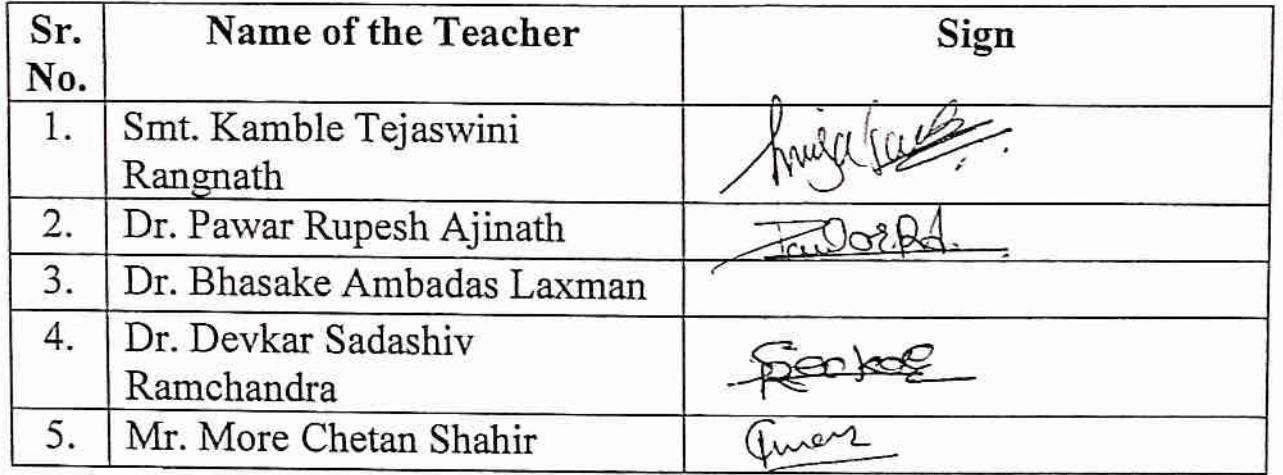 Sr. No. Name of the Teacher Sign
1. Smt. Kamble Tejaswini
Rangnath
2. Dr. Pawar Rupesh Ajinath
3. Dr. Bhasake Ambadas Laxman
4. Dr. Devkar Sadashiv
Ramchandra
5. Mr. More Chetan Shahir